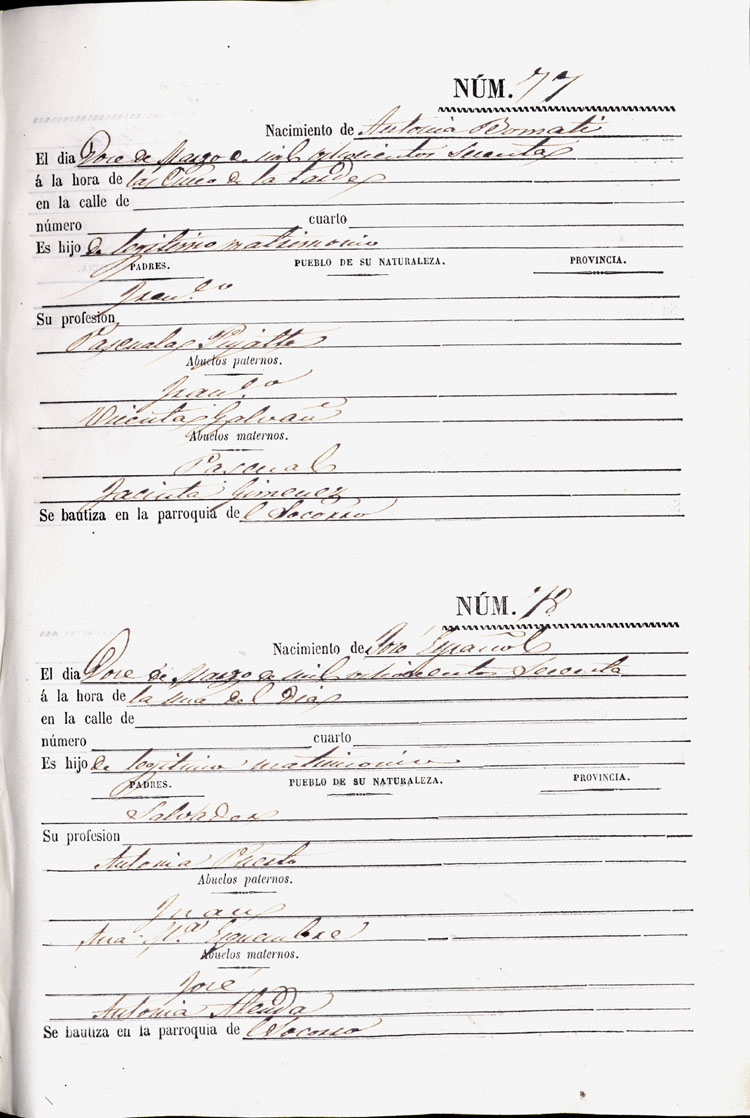 NÚM. 77
Nacimiento de Antonia Bomati
El dia Doce de Marzo de mil ochocientos Sesenta
á la hora de las Cinco de la tarde
en la calle de
número cuarto
Es hijo de legitimo matrimonio
PADRES. PUEBLO DE SU NATURALEZA. PROVINCIA.
Fran.co
Su profesion
Pascuala Pujalte
Abuelos paternos.
Fran.co
Vicenta Galvañ
Abuelos maternos.
Pascual
Jacinta Gimenez
Se bautiza en la parroquia de el Socorro
NÚM. 78
Nacimiento de José Español
El dia Doce de Marzo de mil ochocientos Sesenta
á la hora de la una del Dia
en la calle de
número cuarto
Es hijo de legitimo matrimonio
PADRES. PUEBLO DE SU NATURALEZA. PROVINCIA.
Salvador
Su profesion
Antonia
Abuelos paternos.
Juan
Ana M.a
Abuelos maternos.
José
Antonia Alenda
Se bautiza en la parroquia de el Socorro